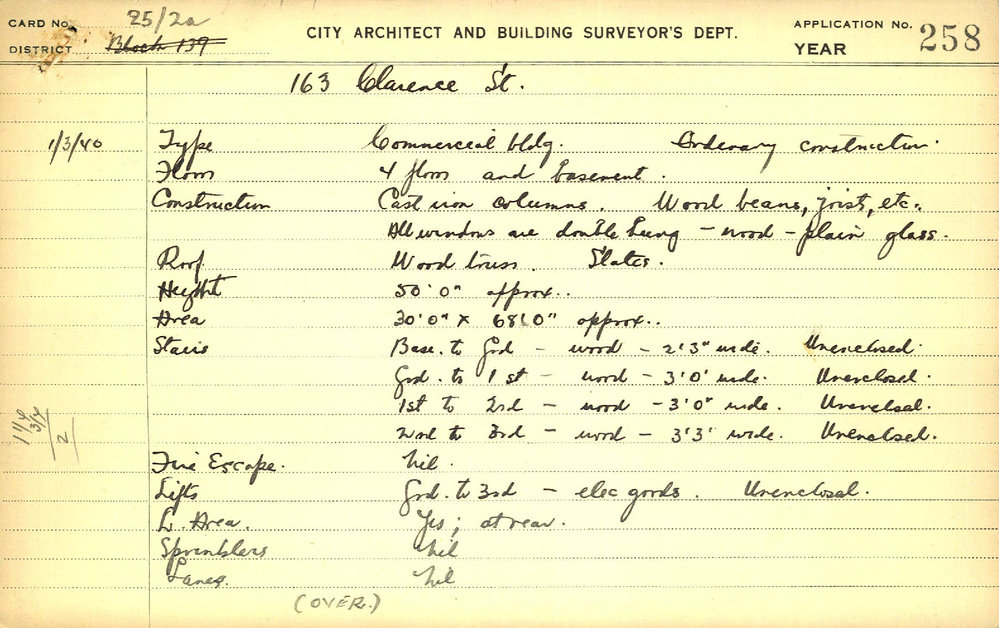 CARD No. 25/2a
DISTRICT Block 139
CITY ARCHITECT AND BUILDING SURVEYOR'S DEPT.
APPLICATION No. 258
YEAR
163 Clarence St.
1/3/40 Type Commercial bldg. Ordinary construction.
Floors 4 floors and basement.
Construction Cast iron columns. Wood beams, joists, etc.
All windows are double hung - wood - plain glass.
Roof Wood truss. Slates.
Height 50'0" approx..
Area 30'0" x 68'0" approx..
Stairs Base. to Grd - wood - 2'3" wide. Unenclosed.
Grd. to 1st - wood - 3'0" wide. Unenclosed.
1st to 2nd - wood - 3'0" wide. Unenclosed.
2nd to 3rd - wood - 3'3" wide. Unenclosed.
Fire Escape. Nil.
Lifts Grd. to 3rd - elec goods. Unenclosed.
L. Area. Yes; at rear.
Sprinklers Nil
Lanes. Nil
(OVER.)